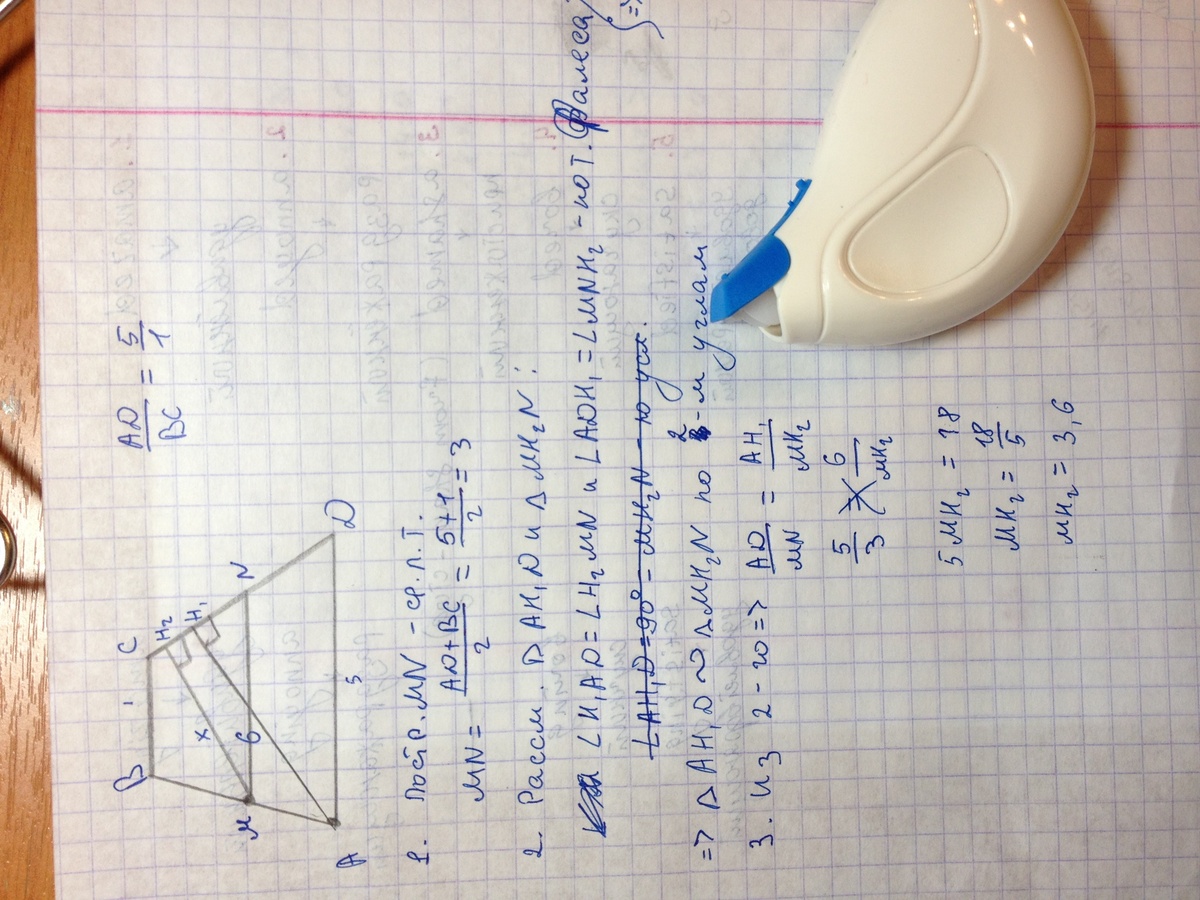 AD/BC = 5/1
B 1 C
H₂
H₁
M x N
6
A 5 D
1. Постр. MN - ср.л.т.
MN = AD+BC/2 = 5+1/2 = 3
2. Рассм. ▷ AH₁D и △ MH₂N:
∠H₁AD = ∠H₂MN и ∠ADH₁ = ∠MNH₂ - по т. Фалеса
=>
∠AH₁D = 90° = MH₂N - по усл.
=> ▷ AH₁D ~ △MH₂N по 2-м углам
3. Из 2-го => AD/MN = AH₁/MH₂
5/3 = 6/MH₂
5MH₂ = 18
MH₂ = 18/5
MH₂ = 3,6